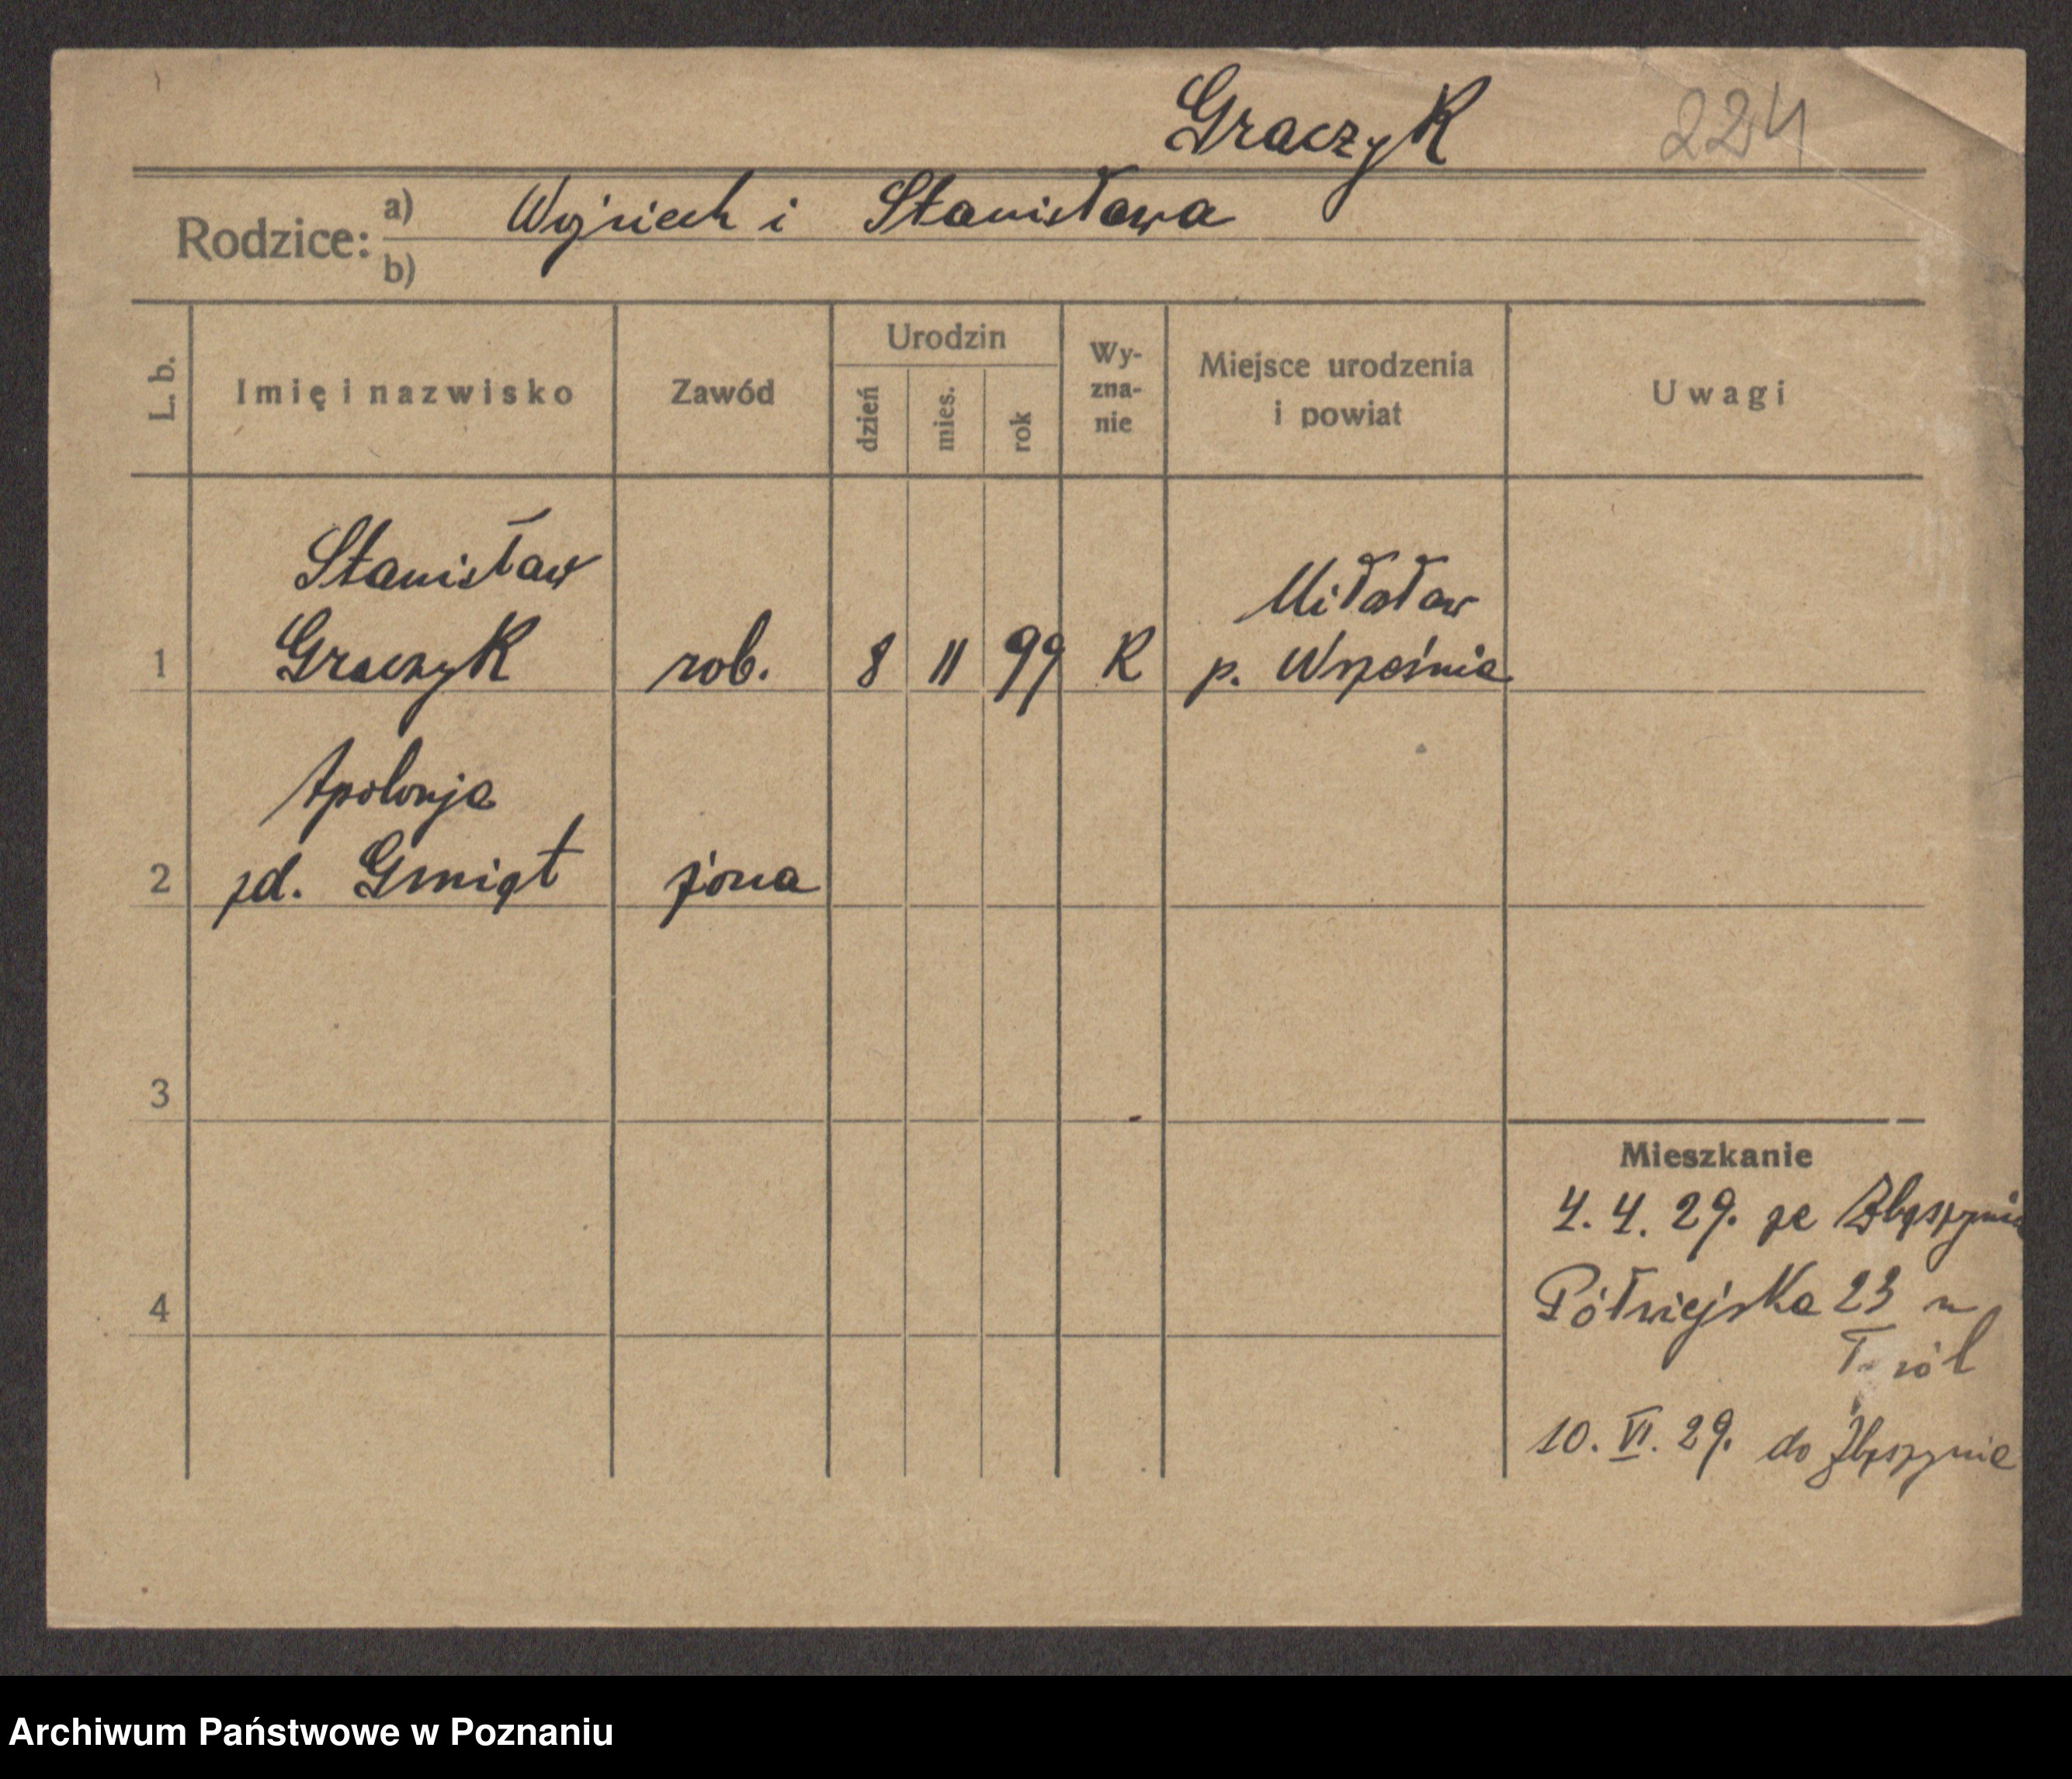 Graczyk 224
Rodzice: a) Wojciech i Stanisława
b)
L. b. Imię i nazwisko Zawód Urodzin dzień mies. rok Wy-zna-nie Miejsce urodzenia i powiat Uwagi
Stanisław Miłosław
1 Graczyk rob. 8 11 99 K p. Września
Apolonja
2 zd. Gmiąt żona
3
Mieszkanie
4. 4. 29. ze Zbąszynia
4 Półwiejska 23 u
10. VI. 29. do Zbąszynia
Archiwum Państwowe w Poznaniu